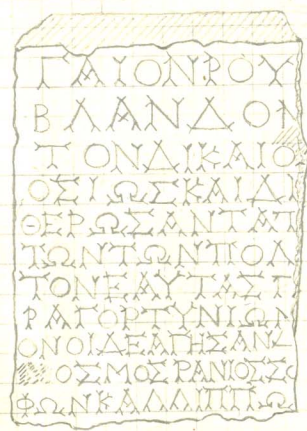 ΓΑΙΟΝΡΟΥ
ΒΛΑΝΔΟΝ
ΤΟΝΔΙΚΑΙΟ
ΟΣΙΩΣΚΑΙΔΙ
ΘΕΡΩΣΑΝΤΑΠ
ΤΩΝΤΩΝΠΟΛ
ΤΟΝΕΑΥΤΑΣΠ
ΡΑΓΟΡΤΥΝΙΩΝ
ΟΝΟΙΔΕΑΓΗΣΑΝ
ΟΣΜΟΣΡΑΝΙΟΣΣΟ
ΦΩΝΚΑΛΛΙΠΠΩ